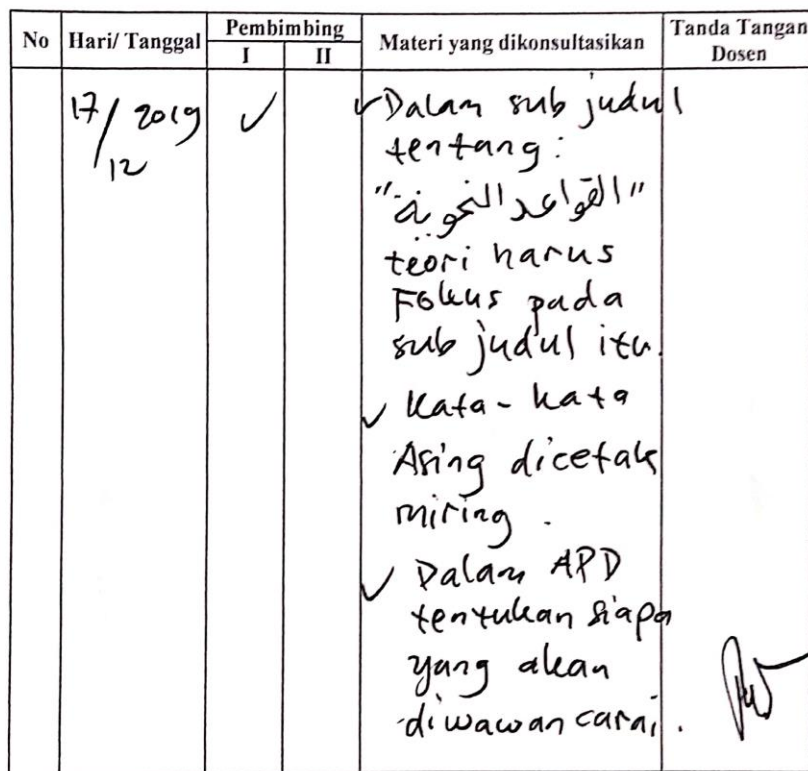 No Hari/ Tanggal Pembimbing Materi yang dikonsultasikan Tanda Tangan
I II Dosen
17/12 2019 ✓ ✓ Dalam sub judul
tentang :
"القواعد النحوية"
teori harus
Fokus pada
sub judul itu.
✓ Kata-kata
Asing dicetak
miring .
✓ Dalam APD
tentukan siapa
yang akan
diwawancarai .